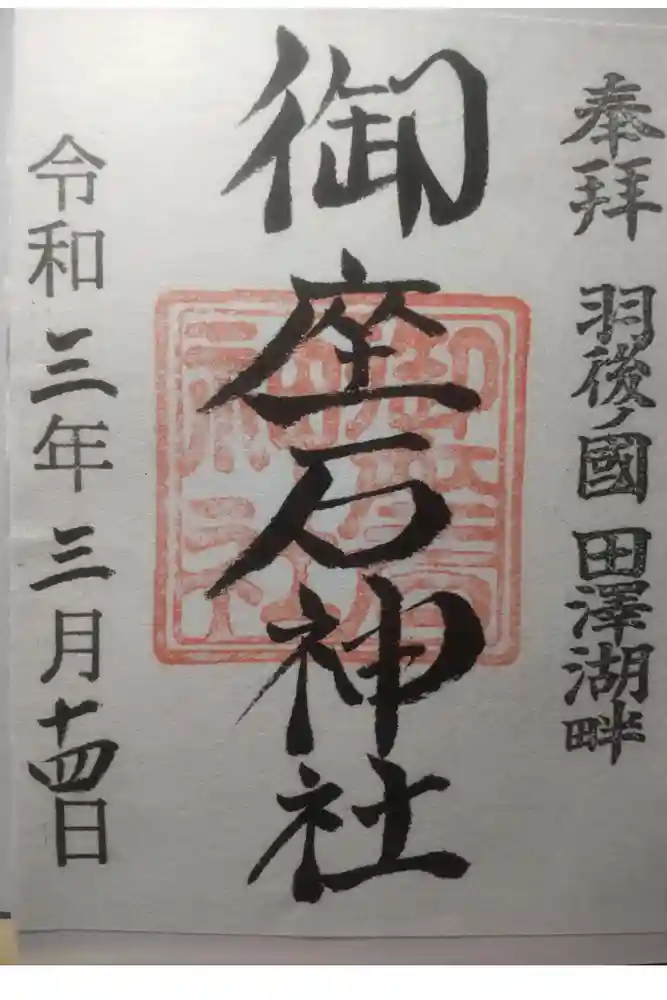 奉拝 羽後ノ國 田澤湖畔
御座石神社
御座石神社
令和三年三月十四日